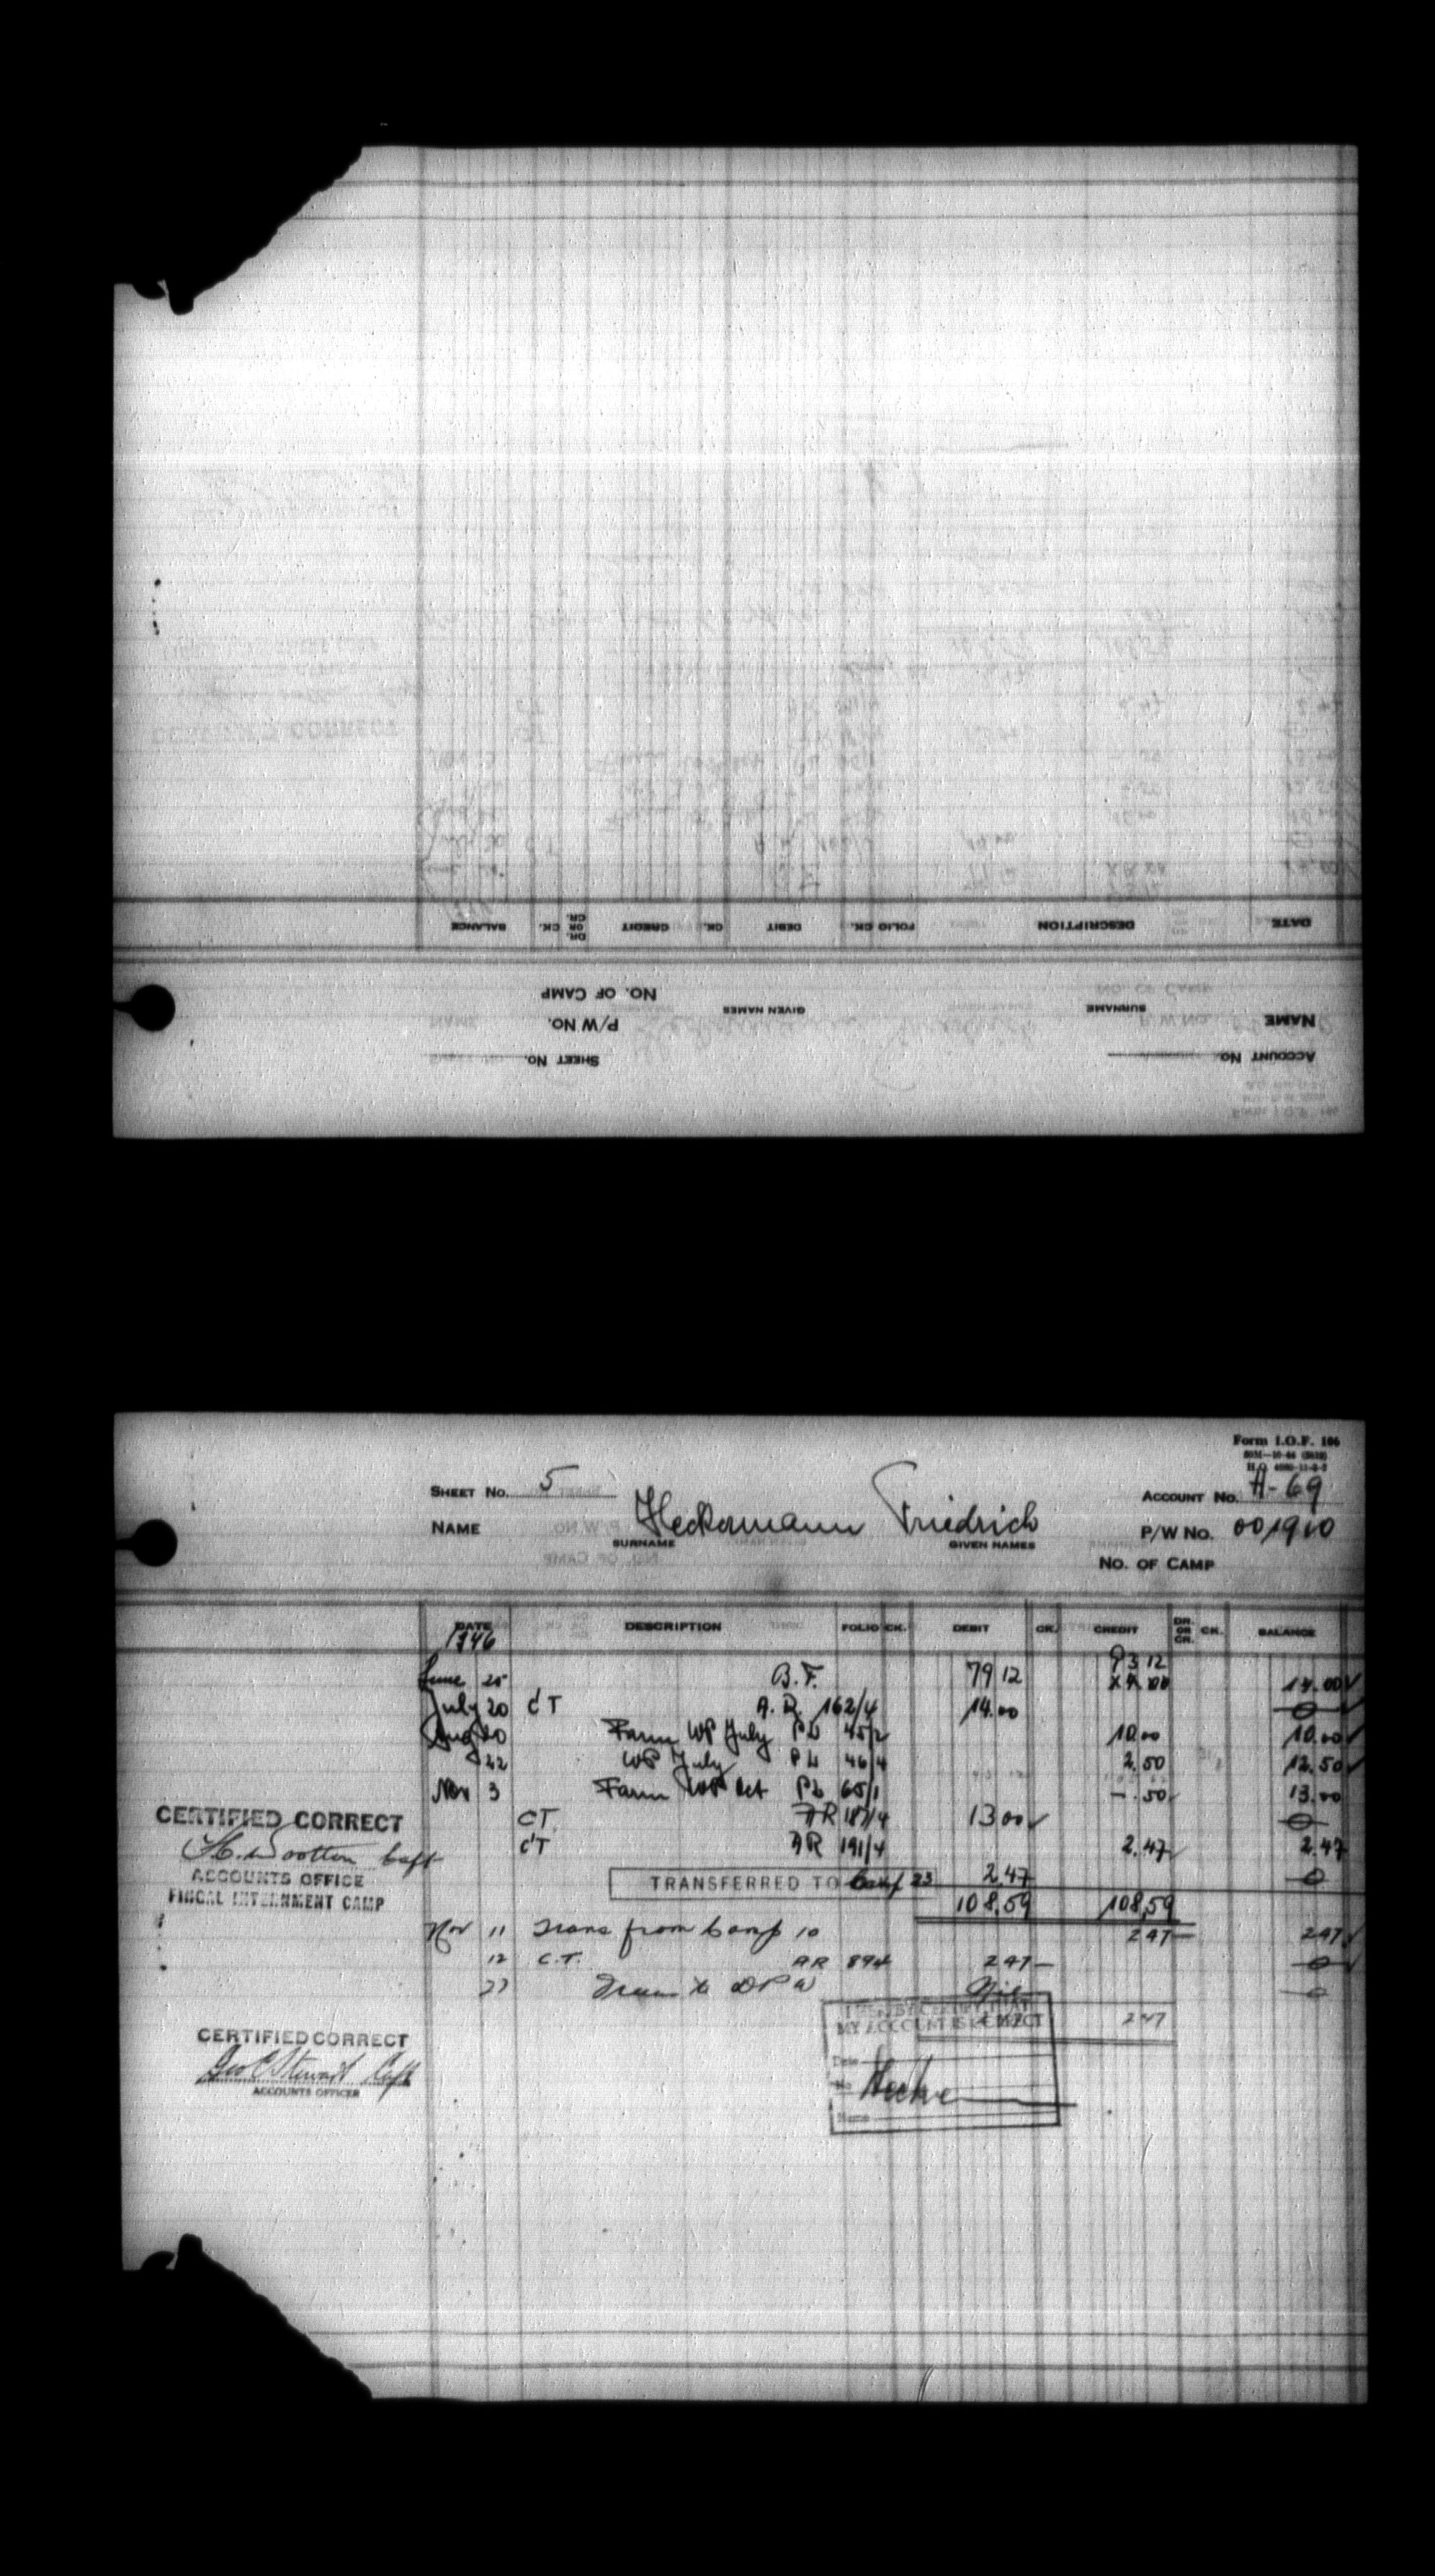 ACCOUNT No. SHEET No.
NAME SURNAME GIVEN NAMES P/W No.
No. OF CAMP
DATE DESCRIPTION FOLIO CK. DEBIT CK. CREDIT DR. OR CR. CK. BALANCE
Form I.O.F. 106
SHEET No. 5 ACCOUNT No. H-69
NAME Heckermann Friedrich P/W No. 001910
SURNAME GIVEN NAMES
No. OF CAMP
DATE DESCRIPTION FOLIO CK. DEBIT CK. CREDIT DR. OR CR. CK. BALANCE
1946
June 25 B.F. 79 12 93 12 14.00
July 20 CT A.R. 162/4 14.00 0
Aug 20 Farm WP July PL 45/2 10.00 10.00
22 WP July PL 46/4 2.50 12.50
Nov 3 Farm WP Oct PL 65/1 -.50 13.00
CT AR 187/4 13 00 0
CT AR 191/4 2.47 2.47
TRANSFERRED TO Camp 23 2.47 0
108.59 108.59
Nov 11 Trans from Camp 10 2 47 2 47
12 C.T. AR 894 2 47 0
27 Trans to DPW Nil 0
2 47
CERTIFIED CORRECT
Wootton Capt
ACCOUNTS OFFICE
FISCAL INTERNMENT CAMP
CERTIFIED CORRECT
Geo C Stewart Capt
ACCOUNTS OFFICER
I HEREBY CERTIFY THAT
MY ACCOUNT IS CORRECT
Date
No
Name